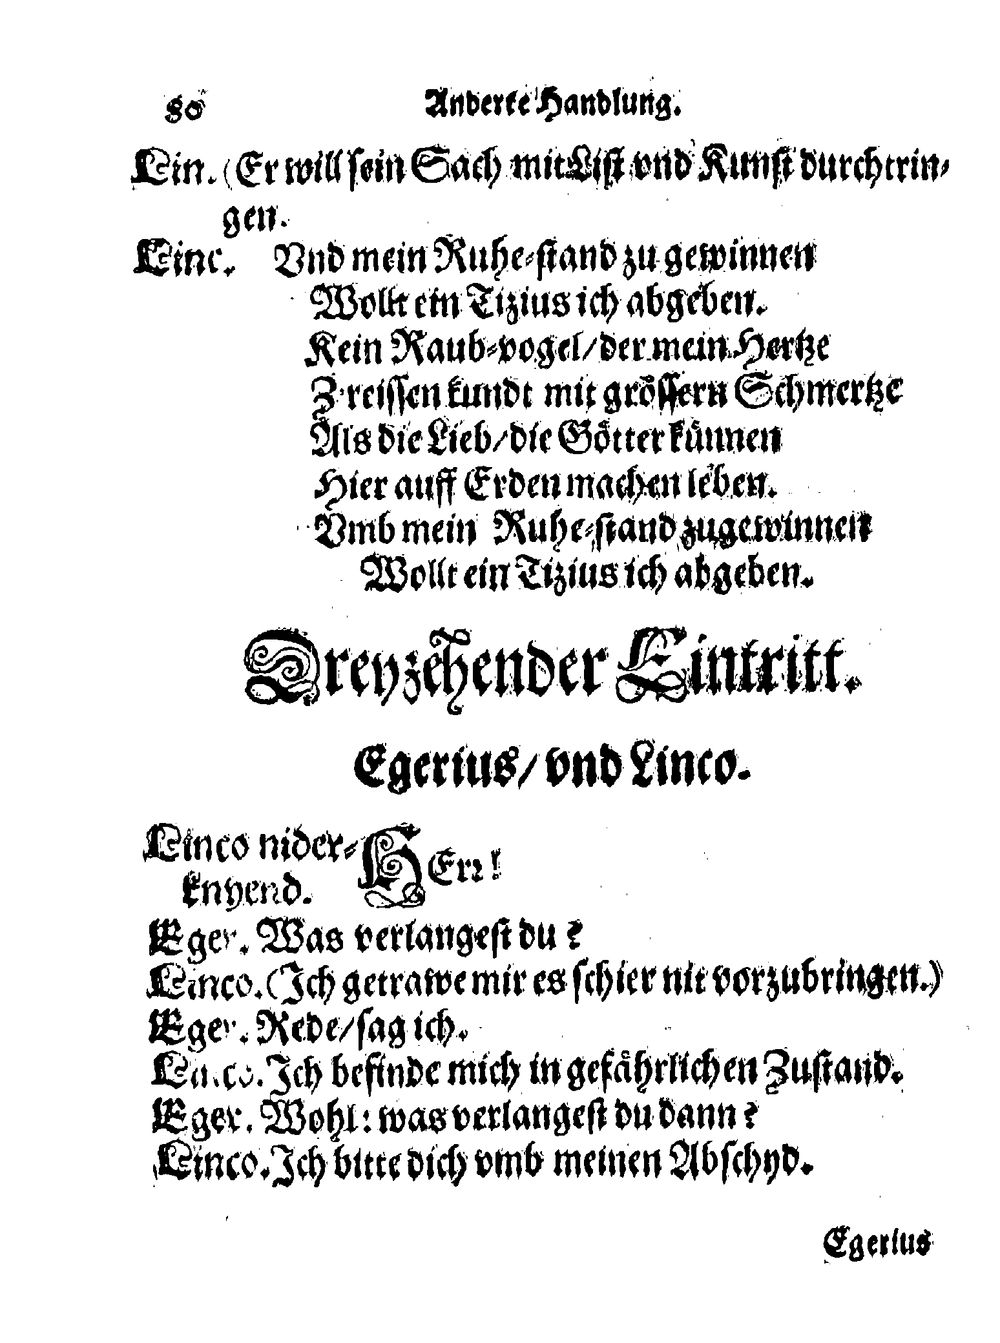 80 Anderte Handlung.
Lin. (Er will sein Sach mit List vnd Kunst durchtrin-
gen.
Linc. Vnd mein Ruhe-stand zu gewinnen
Wollt ein Tizius ich abgeben.
Kein Raub-vogel/der mein Hertze
Z'reissen kundt mit grössern Schmertze
Als die Lieb/die Götter künnen
Hier auff Erden machen leben.
Vmb mein Ruhe-stand zugewinnen
Wollt ein Tizius ich abgeben.
Dreyzehender Eintritt.
Egerius/vnd Linco.
Linco nider- HErr!
knyend.
Eger. Was verlangest du?
Linco. (Ich getrawe mir es schier nit vorzubringen.)
Eger. Rede/sag ich.
Linco. Ich befinde mich in gefährlichen Zustand.
Eger. Wohl: was verlangest du dann?
Linco. Ich bitte dich vmb meinen Abschyd.
Egerius